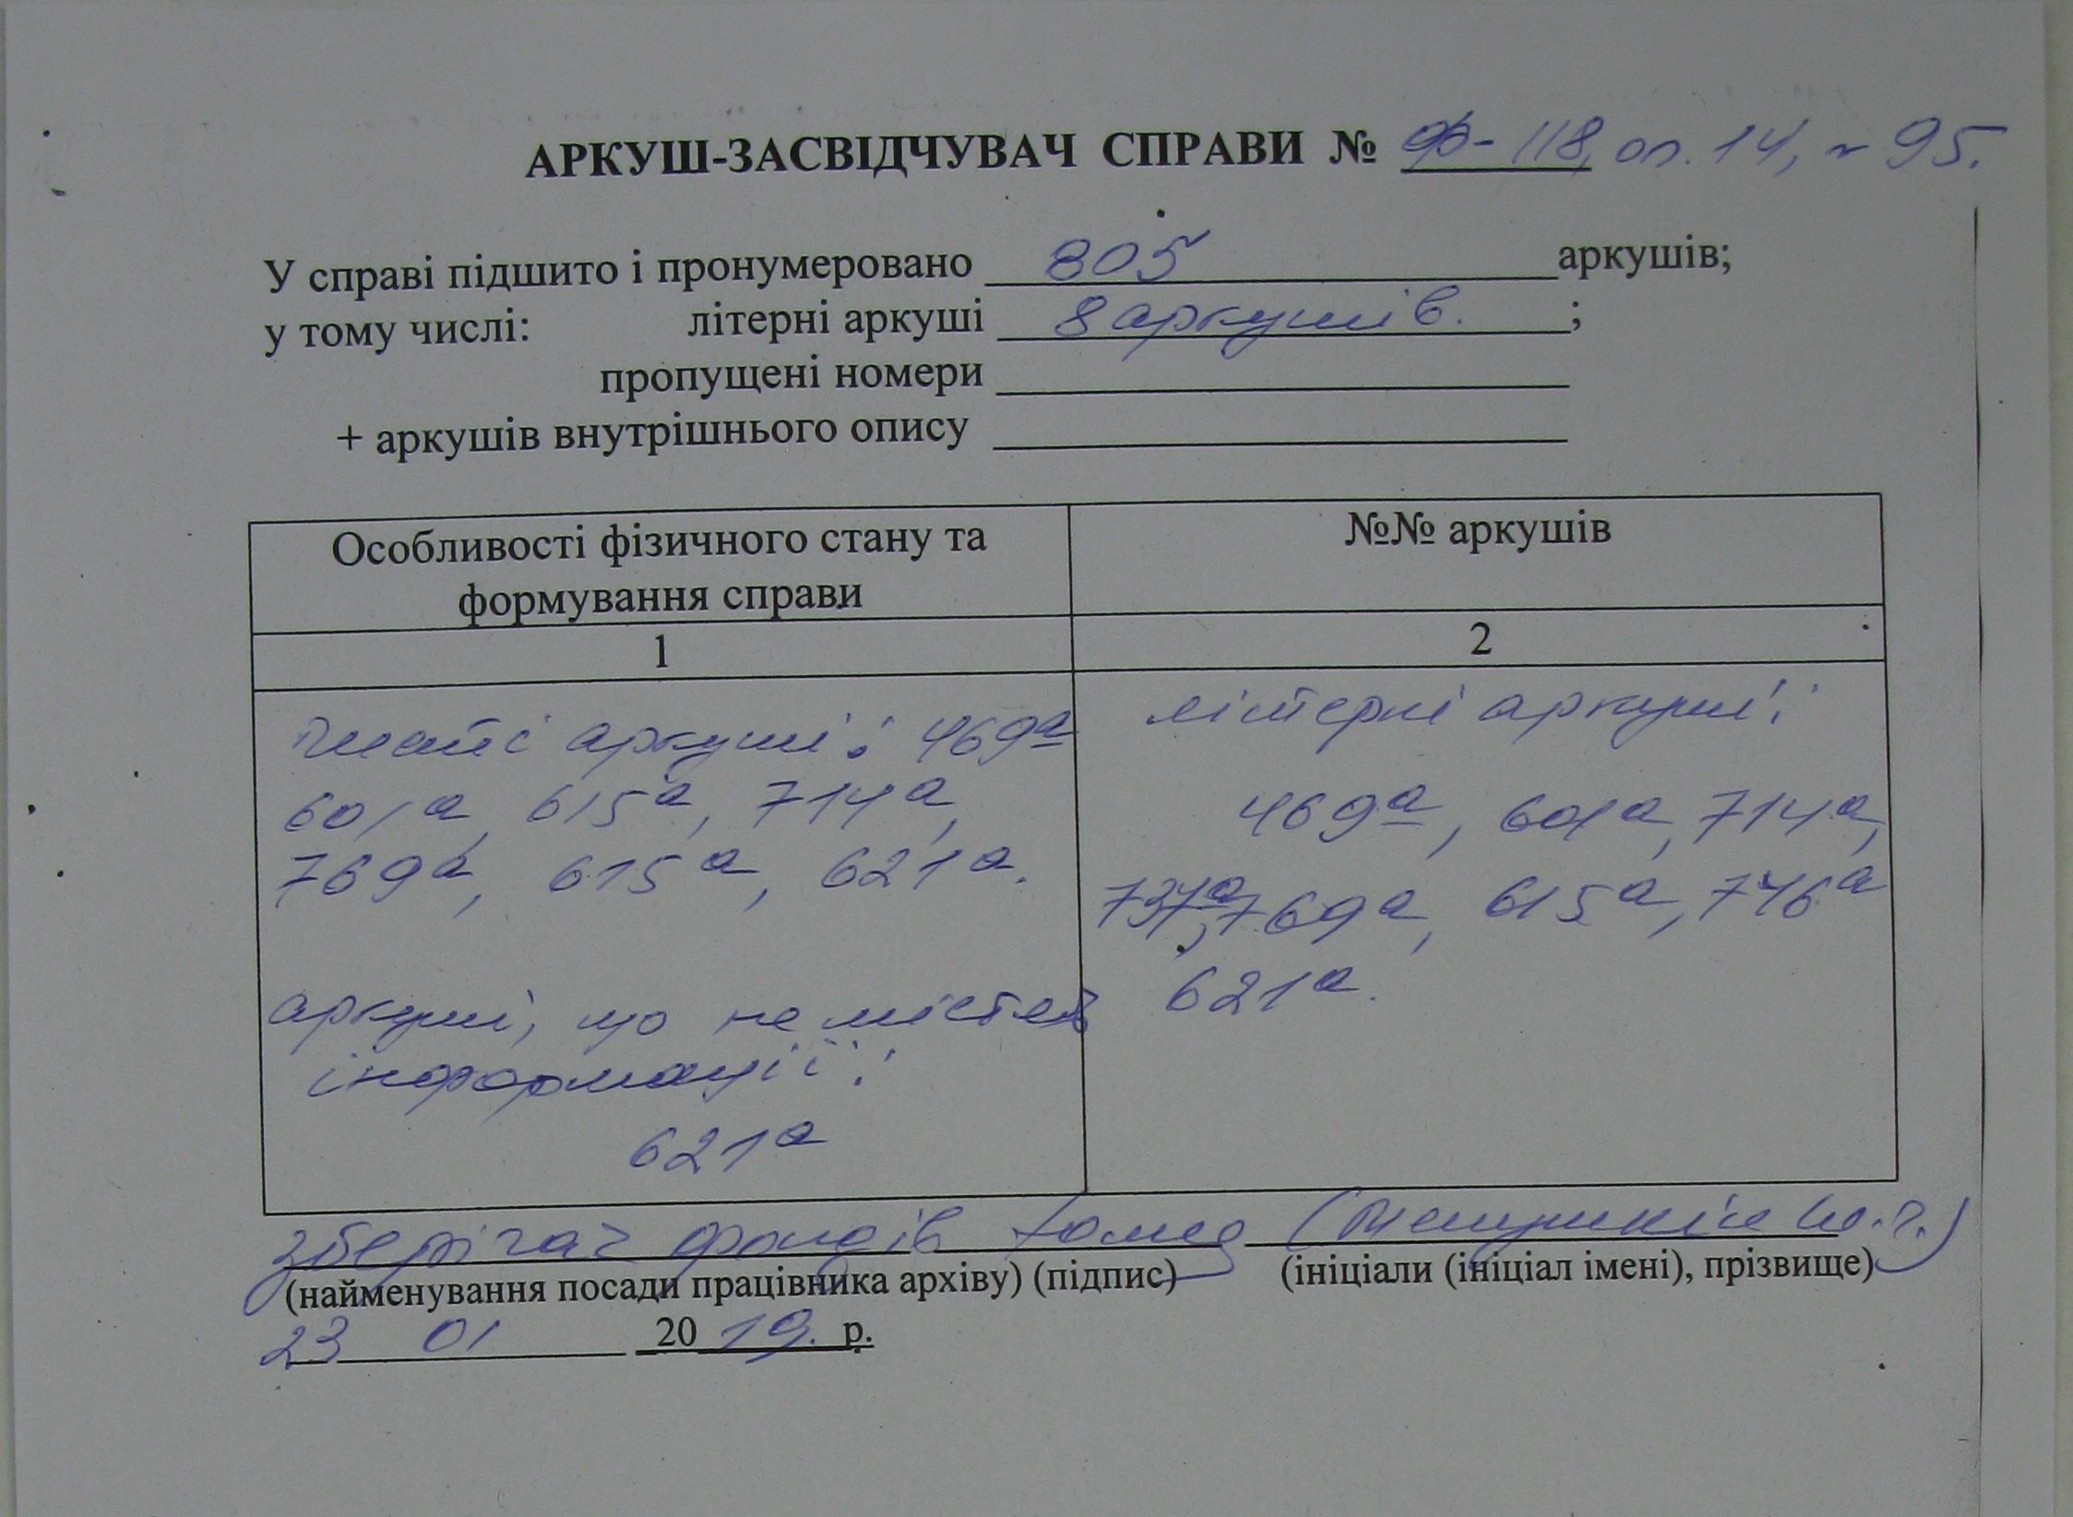 АРКУШ-ЗАСВІДЧУВАЧ СПРАВИ № Ф-118, оп. 14, 95.
У справі підшито і пронумеровано 805 аркушів;
у тому числі: літерні аркуші 8 аркушів. ;
пропущені номери
+ аркушів внутрішнього опису
Особливості фізичного стану та
формування справи
№№ аркушів
1
2
аркуші: 469а
601а, 615а, 714а,
769а, 615а, 621а.
аркуші, що не містять
інформації:
621а
літерні аркуші:
469а, 601а, 714а,
737а, 769а, 615а, 746а
621а.
зберігач фондів
(найменування посади працівника архіву) (підпис) (ініціали (ініціал імені), прізвище)
23 01 2019. р.